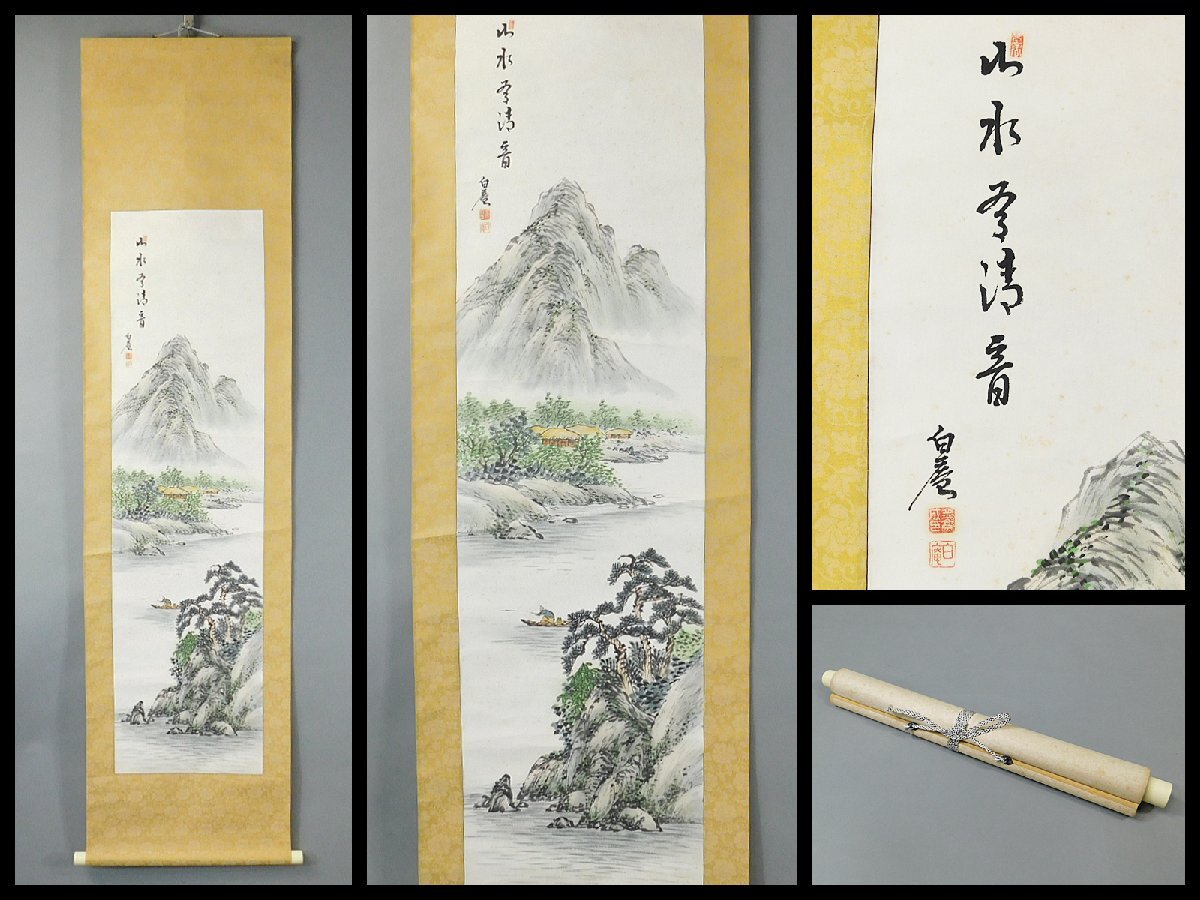 山水有清音
白
山水有清音
白
山水有清音
白
白